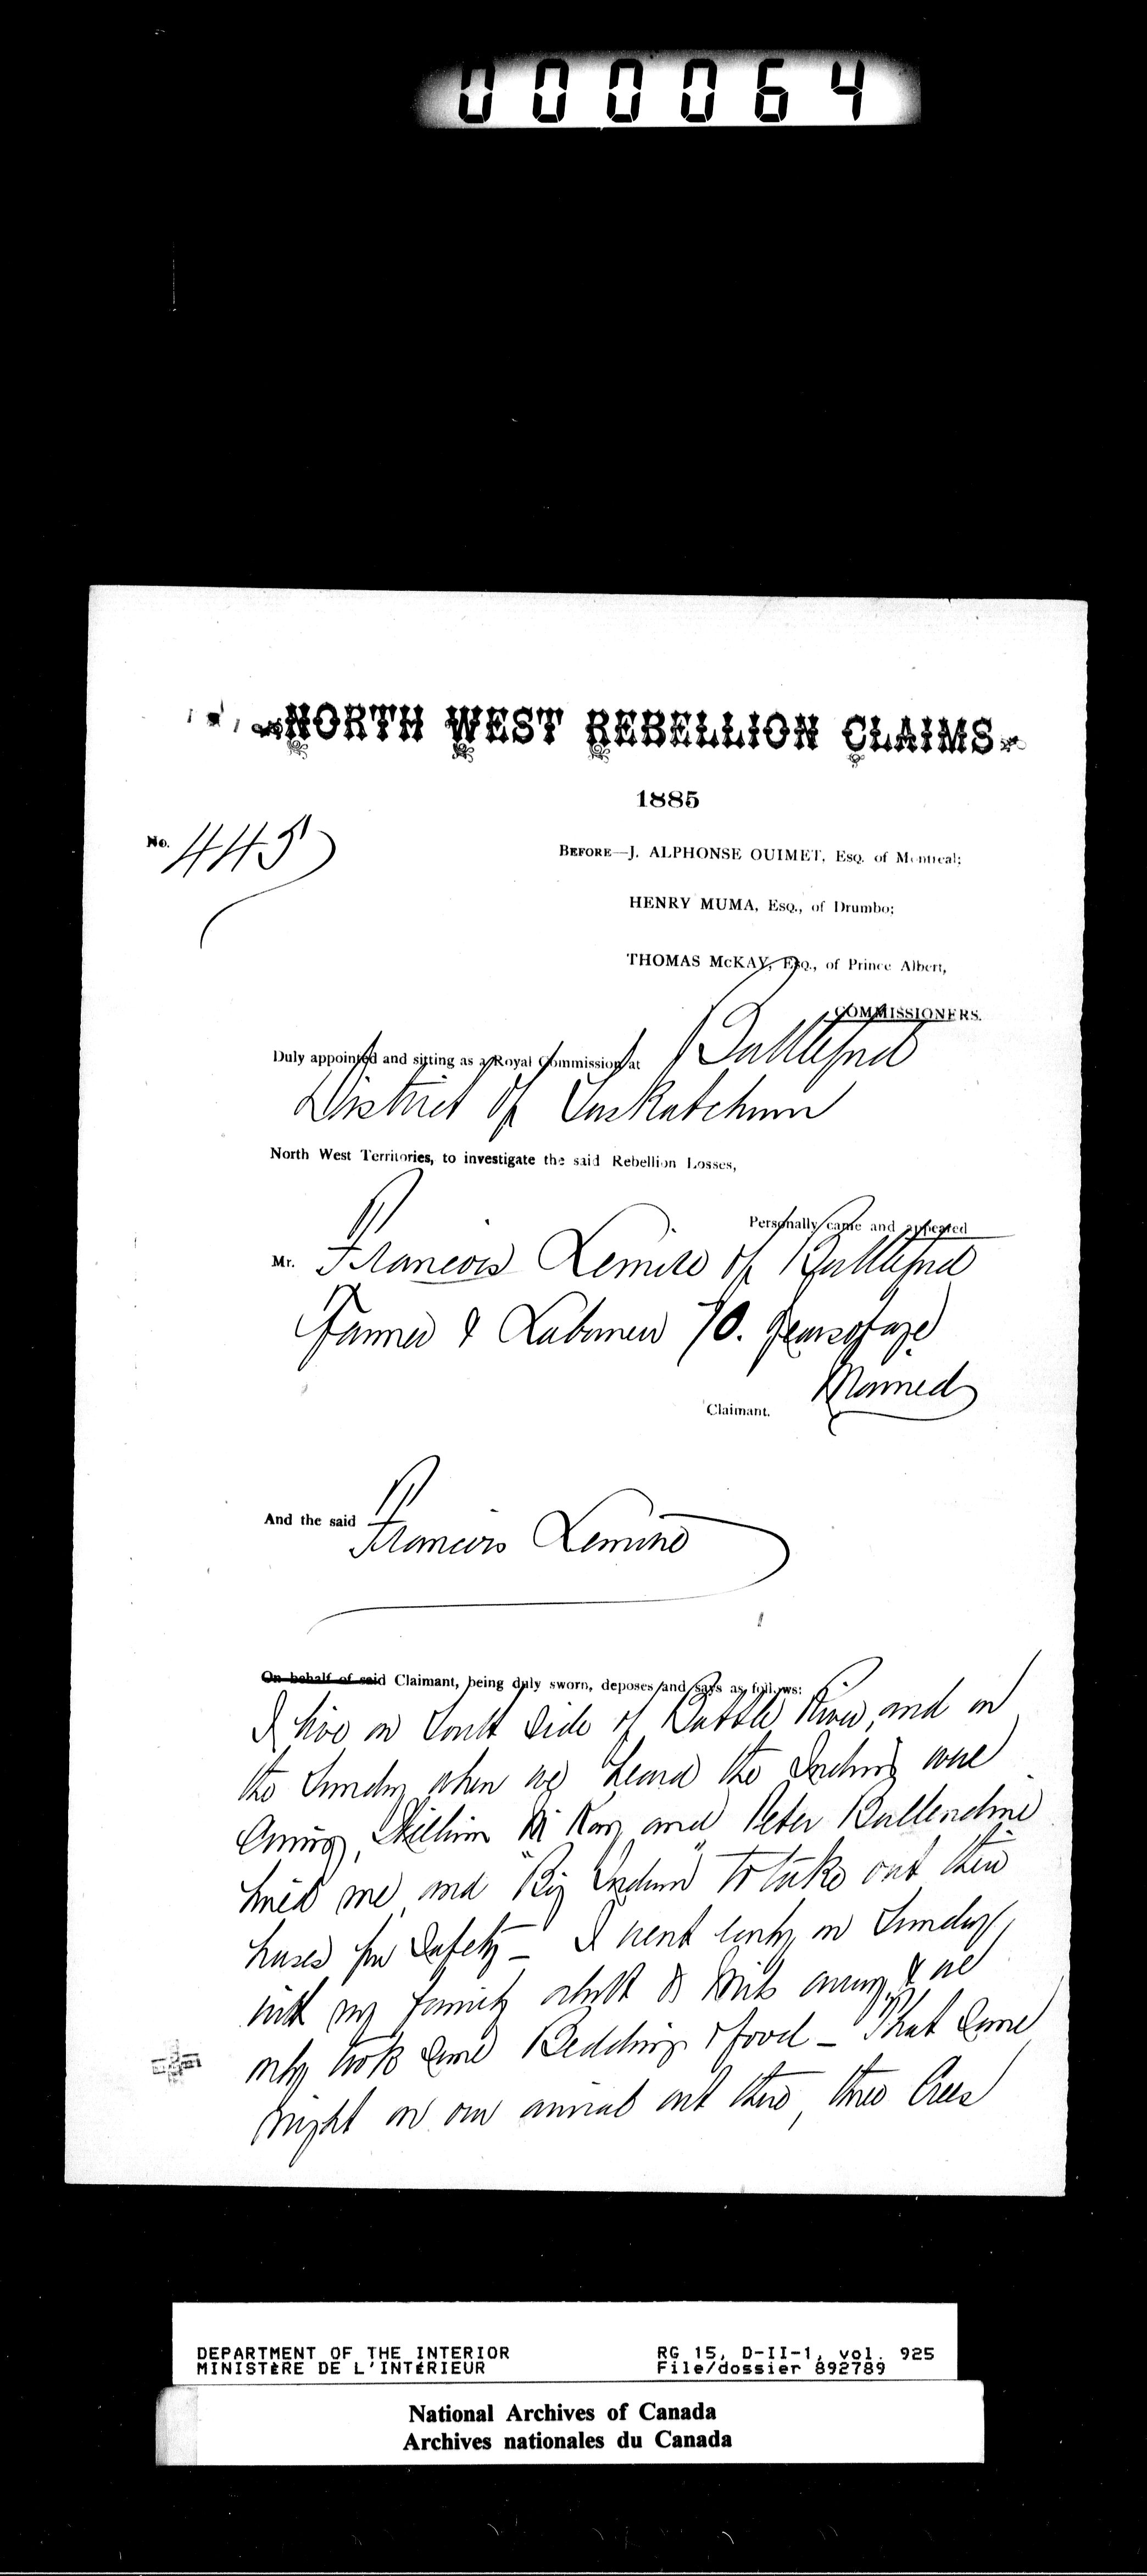 000064
NORTH WEST REBELLION CLAIMS
1885
No. 445
BEFORE—J. ALPHONSE OUIMET, Esq. of Montreal;
HENRY MUMA, Esq., of Drumbo;
THOMAS McKAY, Esq., of Prince Albert,
COMMISSIONERS.
Duly appointed and sitting as a Royal Commission at Battleford
District of Saskatchewan
North West Territories, to investigate the said Rebellion Losses,
Personally came and appeared
Mr. Francois Lemire of Battleford
Farmer & Labourer 70. years of age
Married
Claimant.
And the said Francois Lemire
On behalf of said Claimant, being duly sworn, deposes and says as follows:
I live on South Side of Battle River, and on
the Sunday when we heard the Indians were
coming, William McKay and Peter Ballendine
hired me, and "Big Indian" to take out their
horses for Safety — I went early on Sunday
with my family about 8 miles away, & we
only took some Bedding & food — That same
night on our arrival out there, three Crees
DEPARTMENT OF THE INTERIOR
MINISTÈRE DE L'INTÉRIEUR
RG 15, D-II-1, vol. 925
File/dossier 892789
National Archives of Canada
Archives nationales du Canada